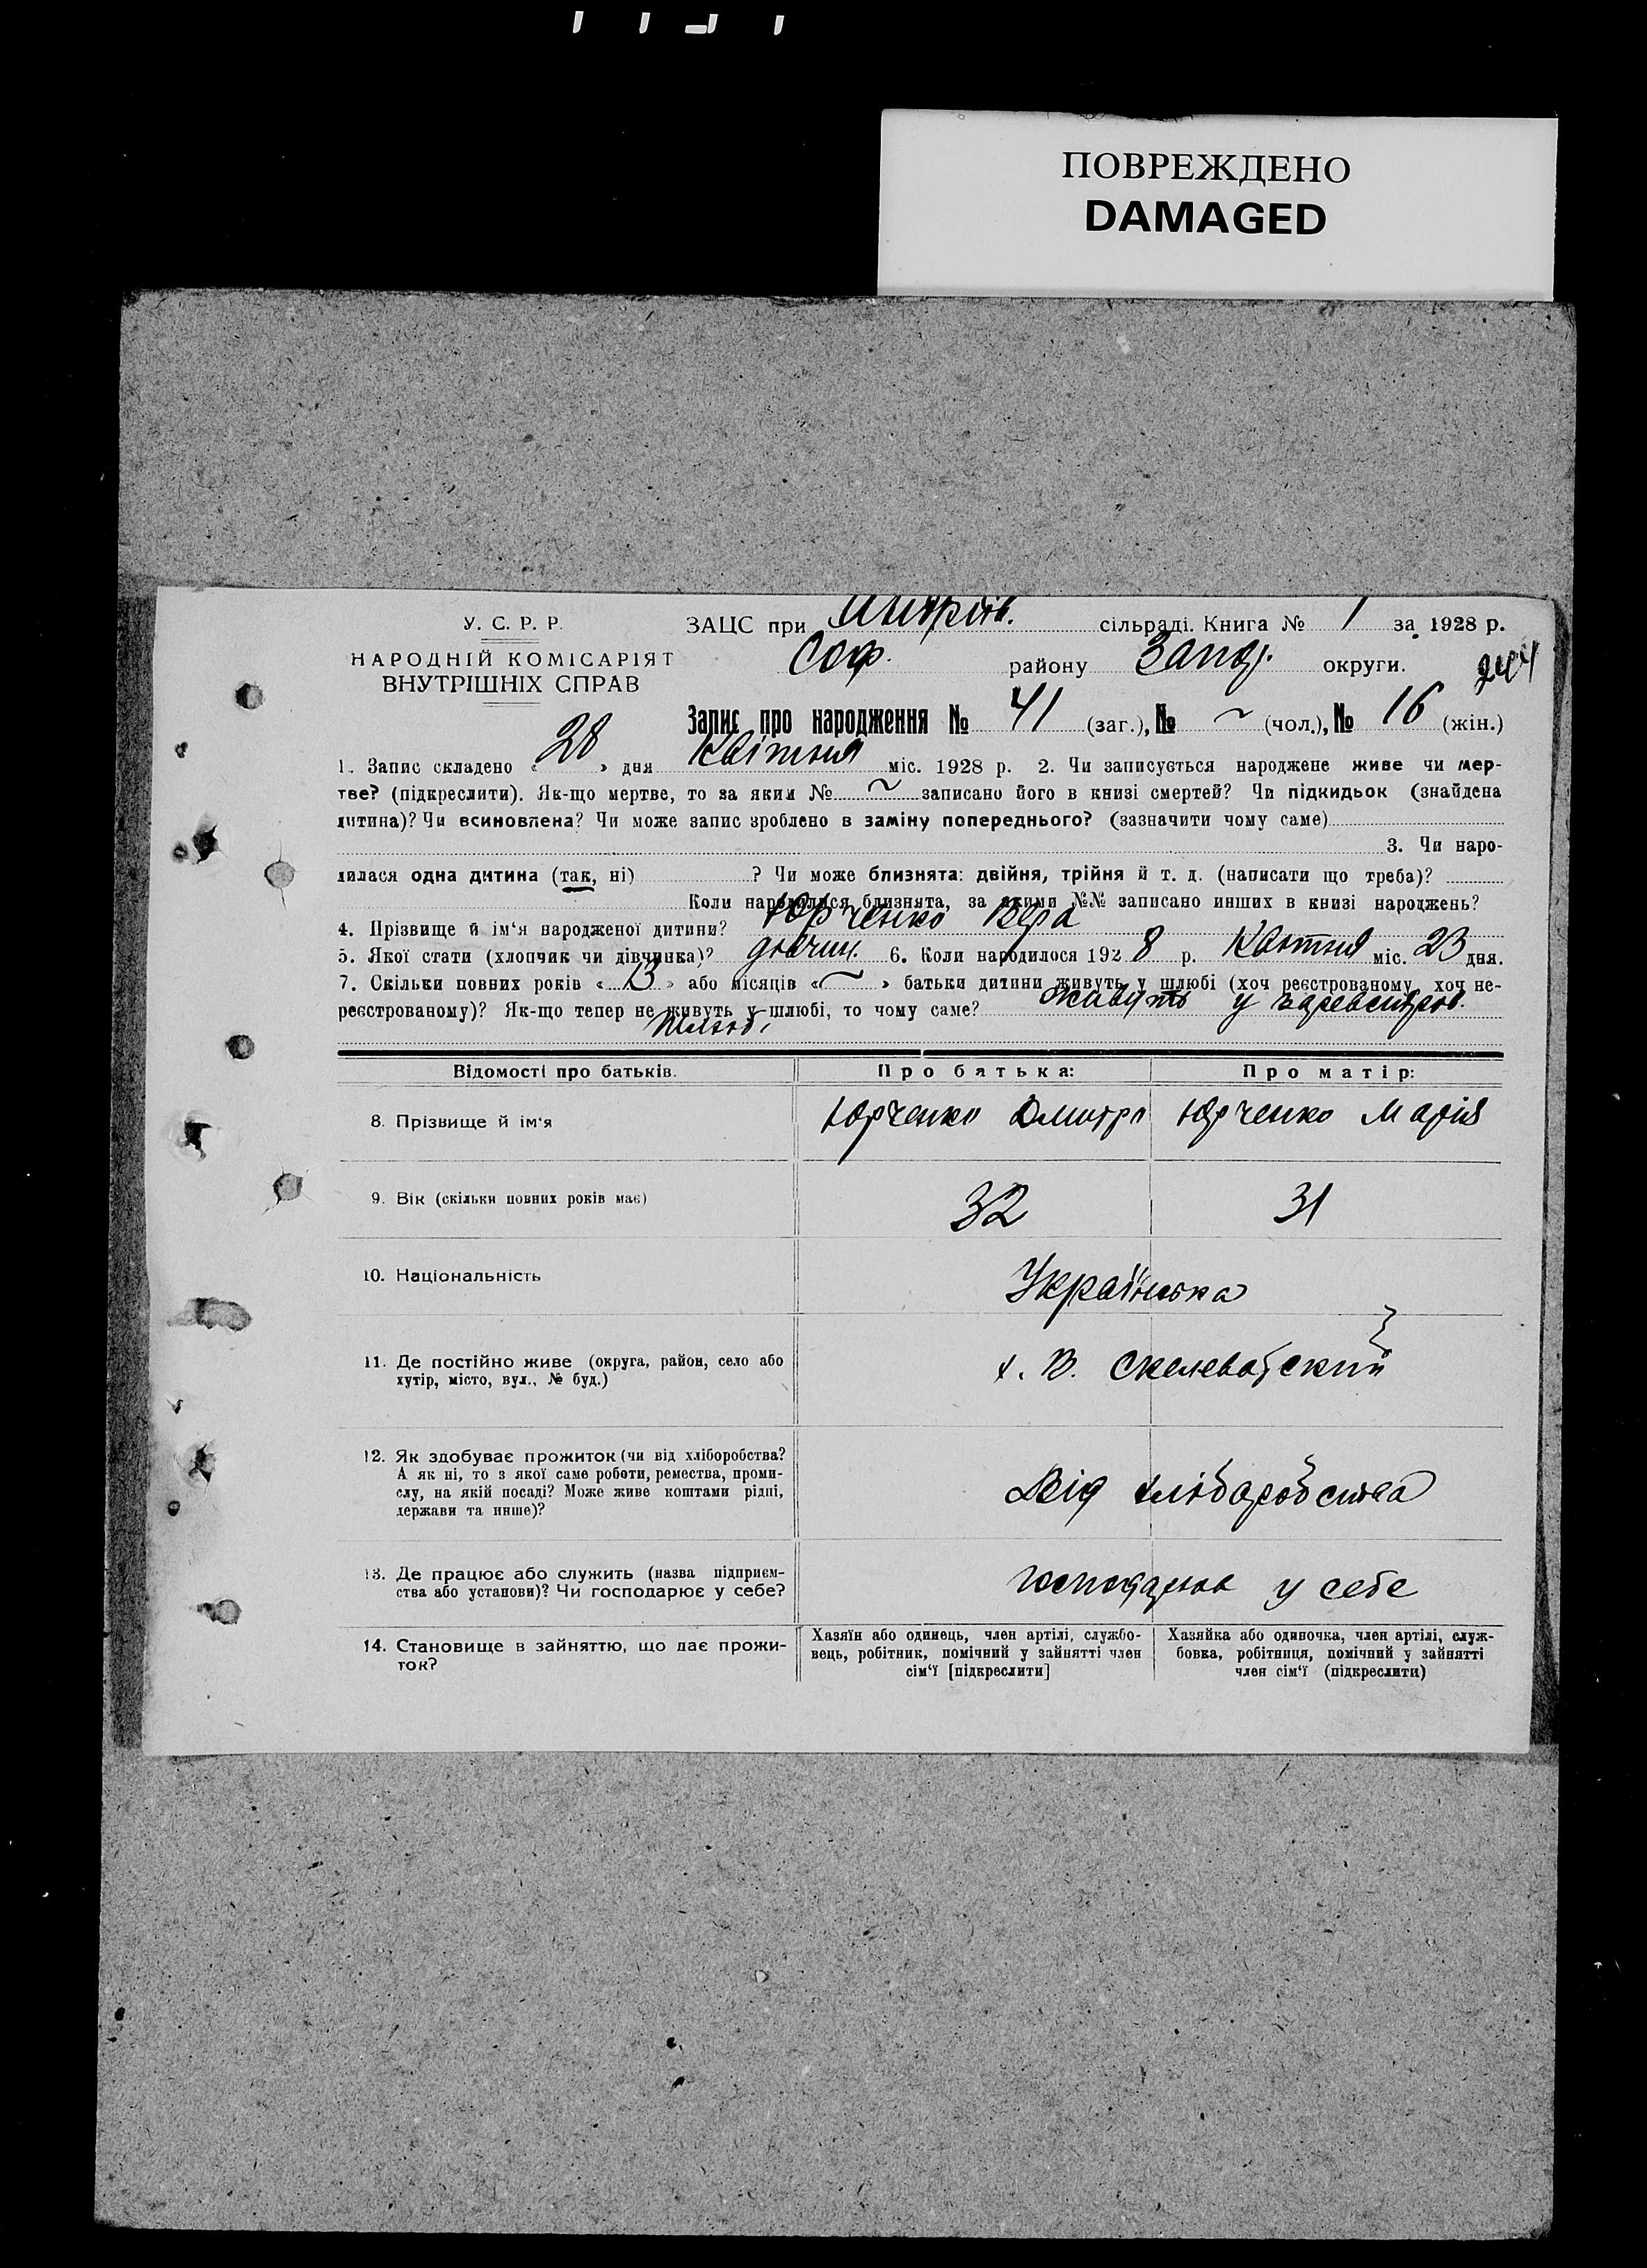 ПОВРЕЖДЕНО
DAMAGED
У. С. Р. Р.
НАРОДНІЙ КОМІСАРІЯТ
ВНУТРІШНІХ СПРАВ
ЗАЦС при сільраді. Книга № 1 за 1928 р.
Соф. району Запор. округи.
244
Запис про народження № 41 (заг.), № ~ (чол.), № 16 (жін.)
1. Запис складено « 28 » дня Квітня міс. 1928 р. 2. Чи записується народжене живе чи мер-
тве? (підкреслити). Як-що мертве, то за яким № ~ записано його в книзі смертей? Чи підкидьок (знайдена
дитина)? Чи всиновлена? Чи може запис зроблено в заміну попереднього? (зазначити чому саме)
3. Чи наро-
дилася одна дитина (так, ні) ? Чи може близнята: двійня, трійня й т. д. (написати що треба)?
Коли народилися близнята, за якими №№ записано инших в книзі народжень?
4. Прізвище й ім'я народженої дитини? Юрченко Вера
5. Якої стати (хлопчик чи дівчинка)? дівчин. 6. Коли народилося 192 8 р. Квітня міс. 23 дня.
7. Скільки повних років « 13 » або місяців « ~ » батьки дитини живуть у шлюбі (хоч реєстрованому, хоч не-
реєстрованому)? Як-що тепер не живуть у шлюбі, то чому саме? живуть у
шлюбі
Відомості про батьків. Про батька: Про матір:
8. Прізвище й ім'я Юрченко Дмитро Юрченко Марія
9. Вік (скільки повних років має) 32 31
10. Національність Українська
11. Де постійно живе (округа, район, село або
хутір, місто, вул., № буд.) х. В. Скелеватский
12. Як здобуває прожиток (чи від хліборобства?
А як ні, то з якої саме роботи, ремества, проми-
слу, на якій посаді? Може живе коштами рідні,
держави та инше)? Від хліборобства
13. Де працює або служить (назва підприєм-
ства або установи)? Чи господарює у себе? у себе
14. Становище в зайняттю, що дає прожи-
ток?
Хазяїн або одинець, член артілі, службо-
вець, робітник, помічний у зайнятті член
сім'ї [підкреслити]
Хазяйка або одиночка, член артілі, служ-
бовка, робітниця, помічний у зайнятті
член сім'ї (підкреслити)